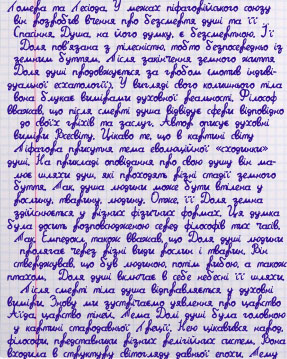 Гомера та Гесіода. У межах піфагорійського союзу
він розробив вчення про безсмертя душі та її
спасіння. Душа, на його думку, є безсмертною. Її
Доля пов'язана з тілесністю, тобто безпосередньо із
земним буттям. Після закінчення земного життя
Доля душі продовжується за гробом (мотив індиві-
дуальної есхатології). У вигляді свого колишнього тіла
вона блукає вимірами духовної реальності. Філософ
вважав, що після смерті душа відвідує сфери відповідно
до своїх гріхів та заслуг. Автор описує духовні
виміри Всесвіту. Цікаво те, що в картині світу
Піфагора присутня тема еволюційної «сходинки»
душі. На прикладі оповідання про свою душу він ма-
лює шляхи душі, які проходять різні стадії земного
буття. Так, душа людини може бути втілена у
рослину, тварину, людину. Отже, її Доля земна
здійснюється у різних фізичних формах. Ця думка
була досить розповсюдженою серед філософів тих часів.
Так, Емпедокл також вважав, що Доля душі людини
пролягає через різні види рослин і тварин. Він
стверджував, що був людиною, потім рибою, а також
птахом. Доля душі включає в себе небесні її шляхи.
Після смерті тіла душа відправляється у духовні
виміри. Знову ми зустрічаємо уявлення про царство
Аїда, царство тіней. Тема Долі душі була головною
у картині стародавньої Греції. Нею цікавився народ,
філософи, представники різних релігійних систем. Вона
входила в структуру світогляду давньої епохи. Тему